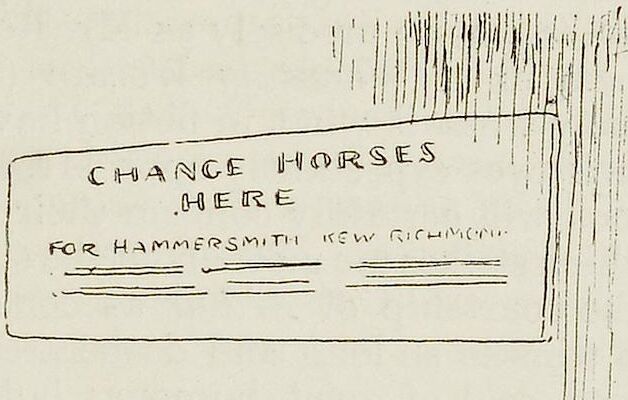 CHANGE HORSES
HERE
FOR HAMMERSMITH KEW RICHMOND